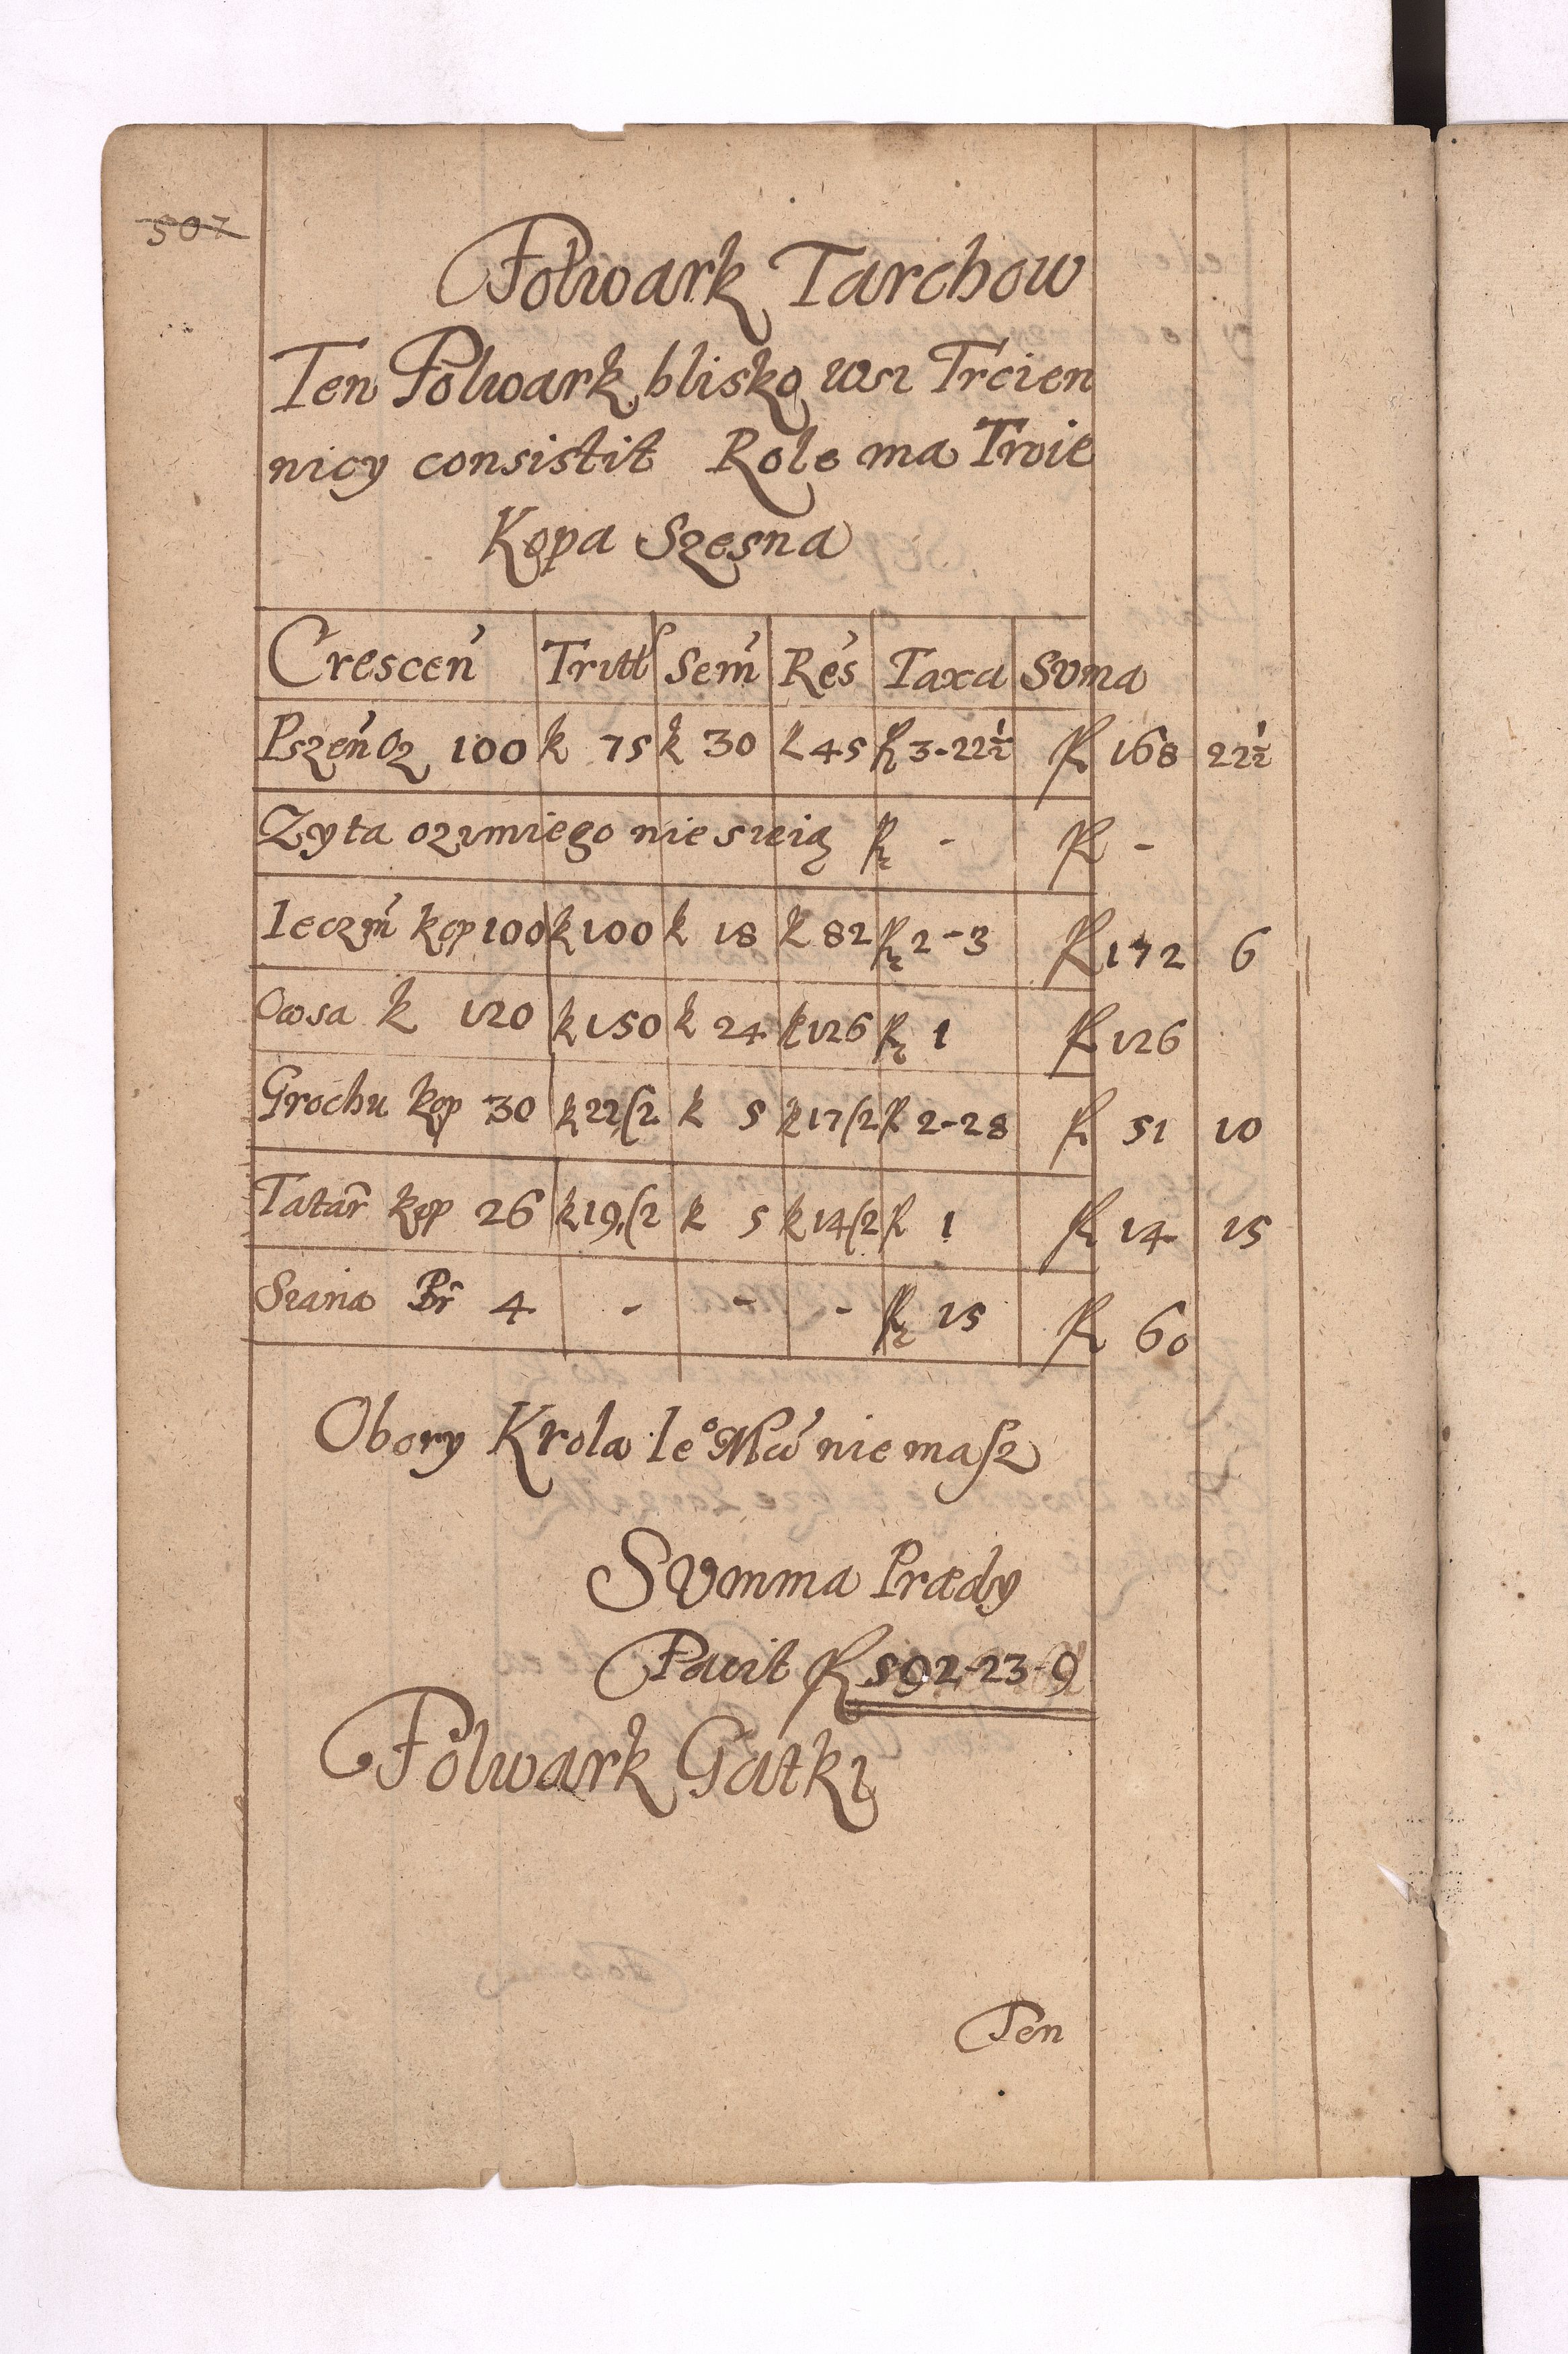 507
Folwark Tarchow
Ten Folwark blisko wsi Trcien
nicy consistit Role ma Troie
Kopa Szesna
Crescen Tritt Sem Res Taxa Suma
Pszen Oz 100 k 75 k 30 k 45 fl 3-22½ fl 168 22½
Zyta ozimiego nie sieią fl - fl -
Ieczm kop 100 k 100 k 18 k 82 fl 2-3 fl 172 6
Owsa k 120 k 150 k 24 k 126 fl 1 fl 126
Grochu kop 30 k 22/2 k 5 k 17/2 fl 2-28 fl 51 10
Tatar kop 26 k 19/2 k 5 k 14/2 fl 1 fl 14 15
Siana Br 4 - - - fl 15 fl 60
Obory Krola Ieº Mci nie masz
Summa Prædy
Facit fl 592-23-9
Folwark Gatki
Ten